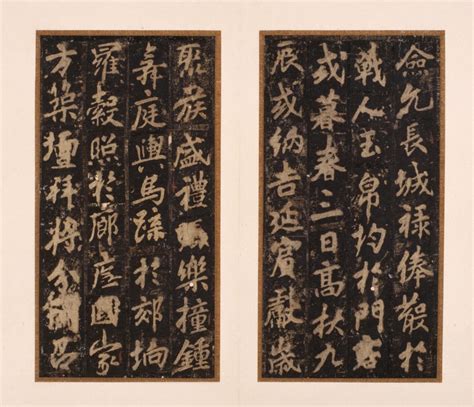 僉允長城祿俸散於
戟人玉帛均於門客
或暮春三日高秋九
辰或納吉延賓獻歲
聚族盛禮樂撞鍾
舞庭輿馬於郊坰
羅縠照於廊廡國家
方築壇拜將全呂